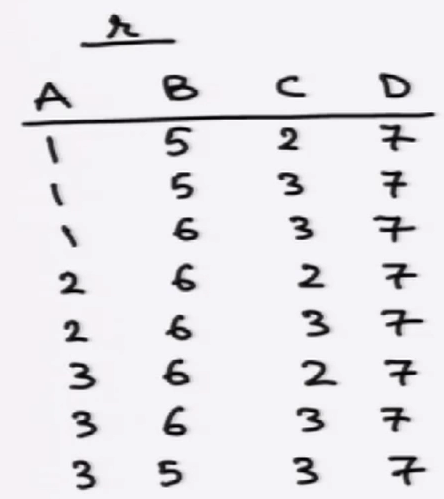 r
A B C D
1 5 2 7
1 5 3 7
1 6 3 7
2 6 2 7
2 6 3 7
3 6 2 7
3 6 3 7
3 5 3 7